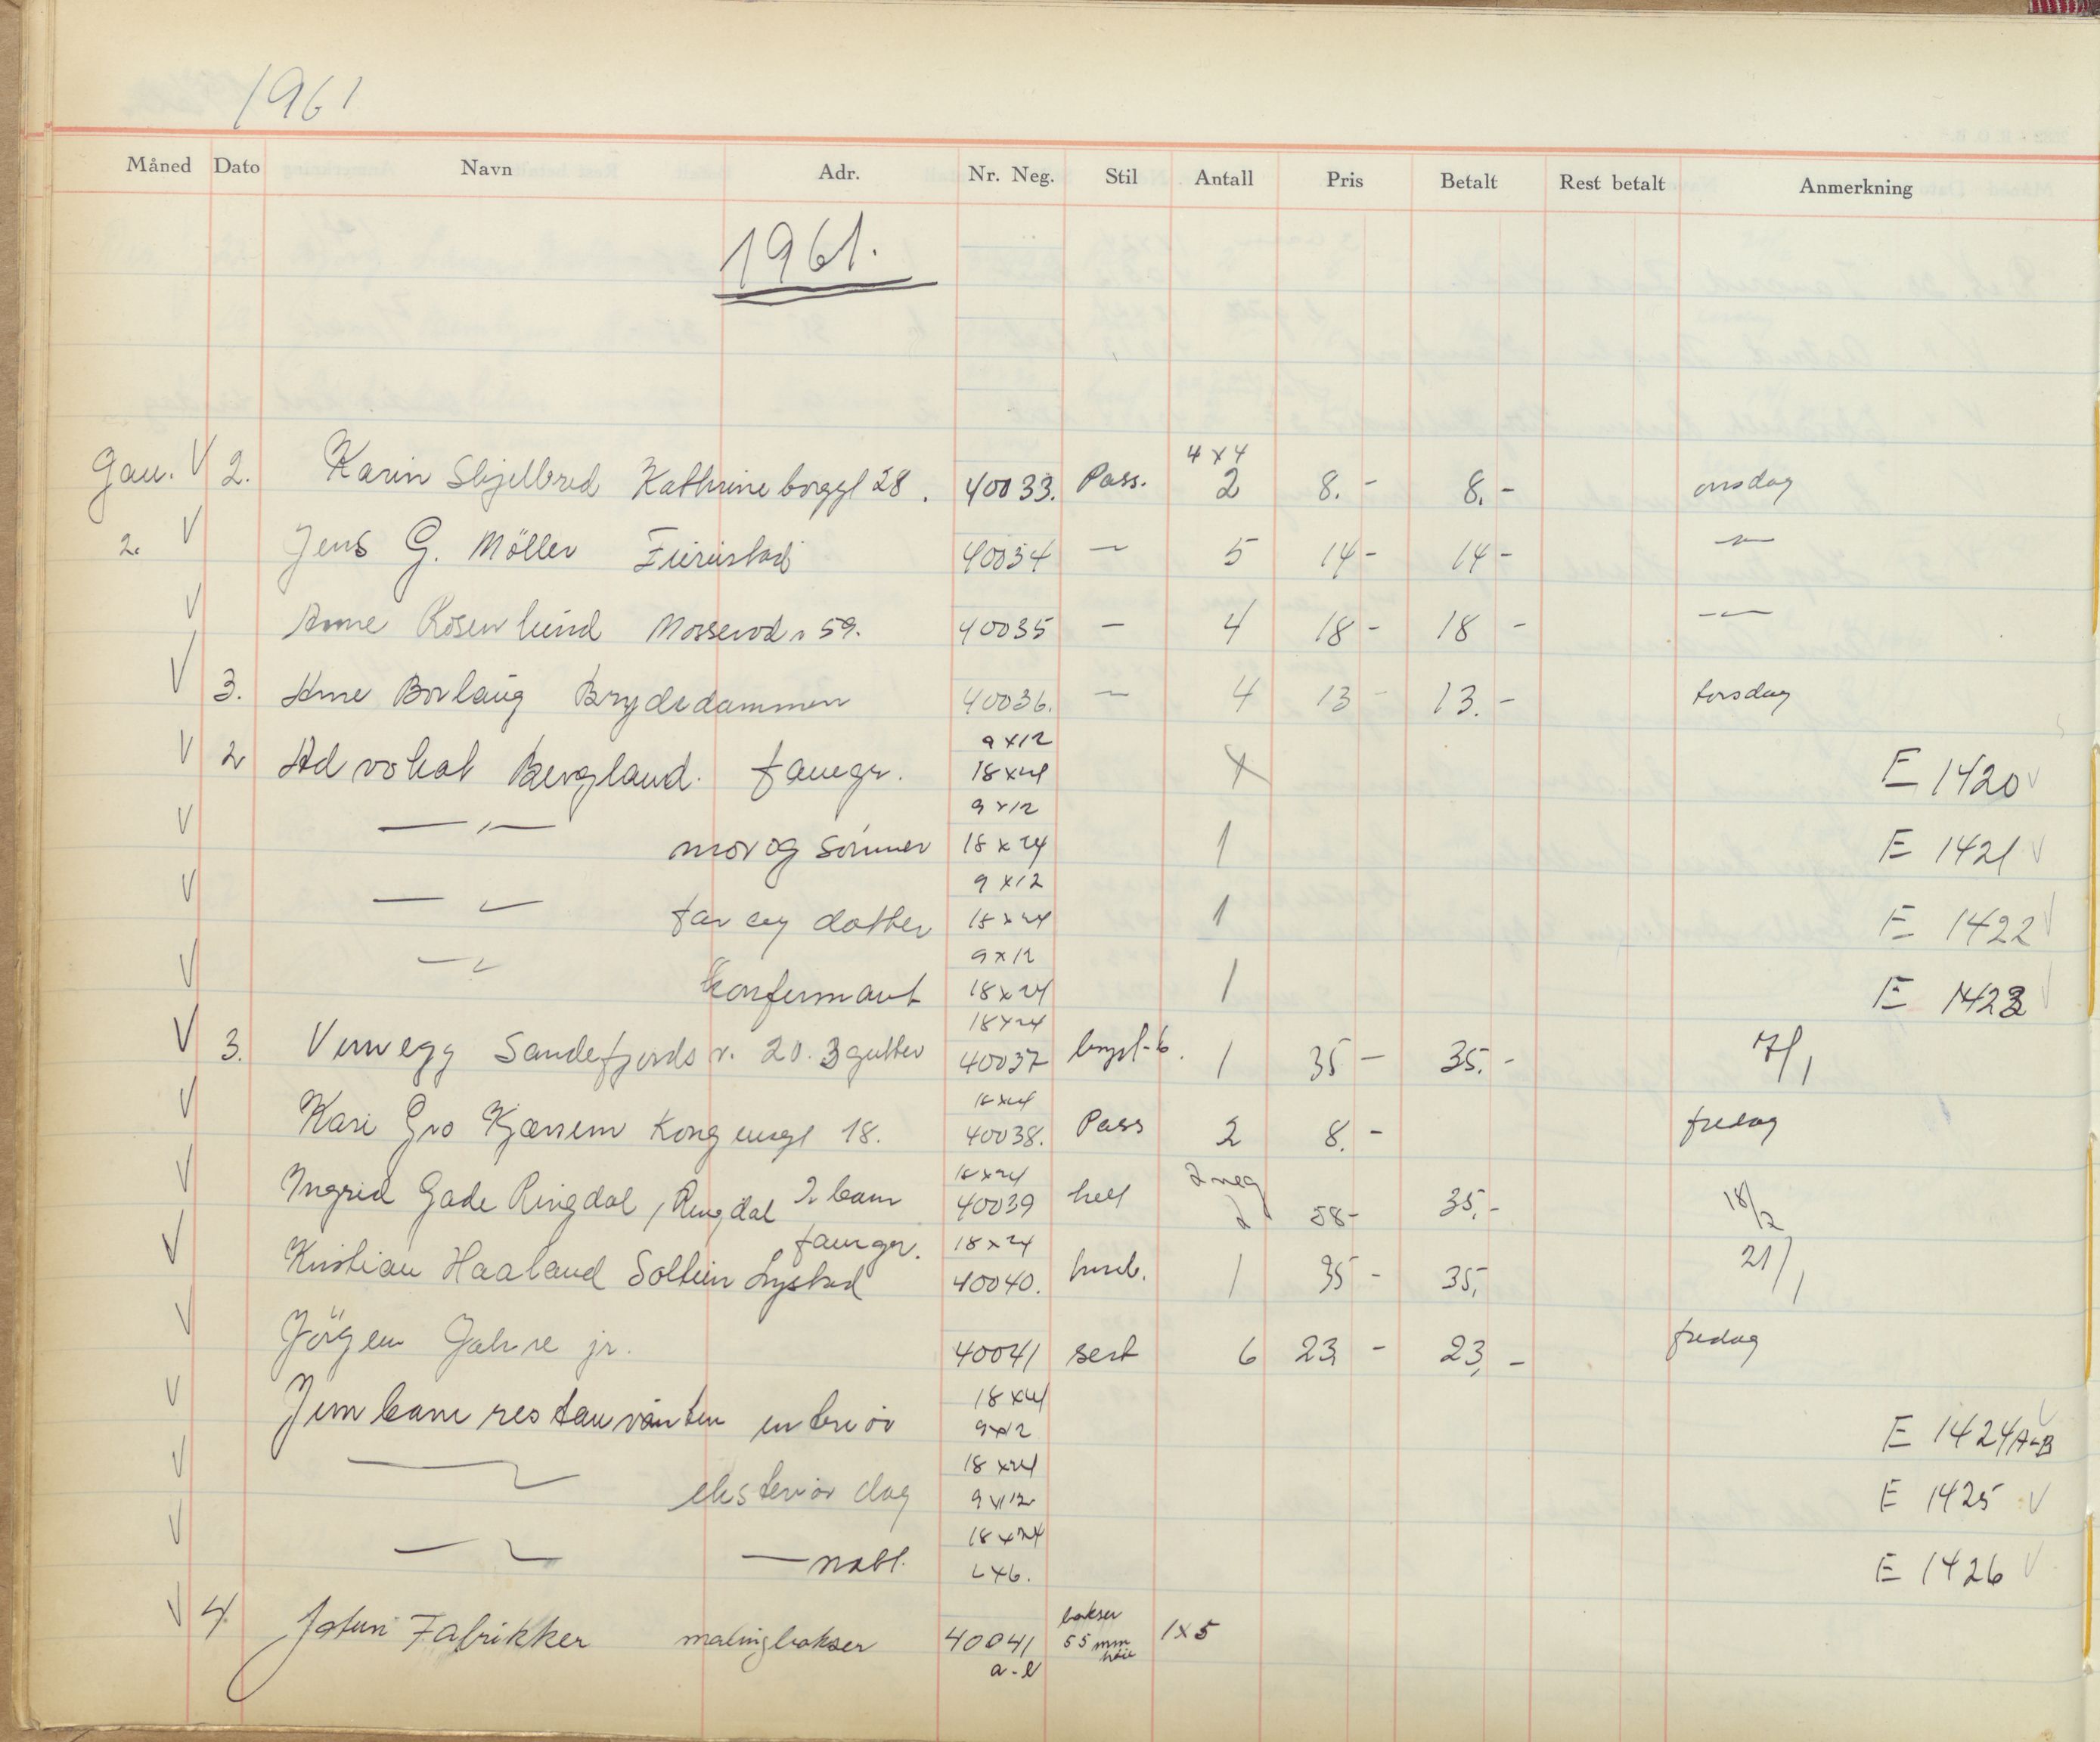 1961
Måned Dato Navn Adr. Nr. Neg. Stil Antall Pris Betalt Rest betalt Anmerkning
1961.
4x4
Jan. V 2. Karin Skjellbred Kathrineborggt 28. 40033. Pass. 2 8.- 8.- onsdag
2. V Jens G. Möller Furustad 40034 — 5 14- 14- —"—
V Anne Rosenlund Mosserød v 59. 40035 — 4 18- 18- —"—
V 3. Arne Borlaug Brydedammen 40036. — 4 13- 13.- torsdag
9x12
V 2 Advokat Bergland. famgr. 18x24 E 1420 V
9x12
V —"— mor og sönner 18x24 1 E 1421 V
9x12
V —"— far og datter 18x24 1 E 1422 V
9x12
V —"— konfirmant 18x24 1 E 1423 V
18x24
V 3. Sandefjords v. 20. 3 gutter 40037 1 35- 35.- 7/1
18x24
V Kari Gro Kjærrem Kongensgt 18. 40038. Pass 2 8.- fredag
18x24 2 neg
V Ingrid Gade Ringdal, Ringdal 2 barn 40039 hell 2 58- 35.- 18/2
famgr. 18x24
V Kristian Haaland Solltun Nystad 40040. 1 35- 35,- 21/1
V Jörgen Jahre jr. 40041 sert 6 23,- 23,- fredag
18x24
V Jernbanerestauranten interiör 9x12 E 1424 A-B V
18x24
V —"— eksteriör dag 9x12 E 1425 V
18x24
V —"— — natt. 6x6. E 1426 V
bokser
V 4 Jotun Fabrikker malingbokser 40041 55 mm 1x5
a-e